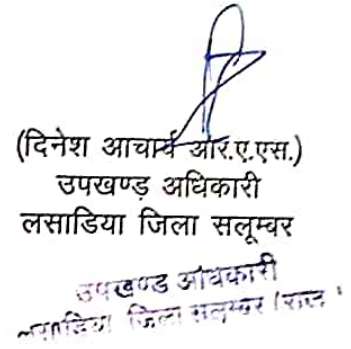 (दिनेश आचार्य आर.ए.एस.)
उपखण्ड़ अधिकारी
लसाडिया जिला सलूम्बर
उपखण्ड अधिकारी
लसाडिया जिला सलुम्बर (राज.